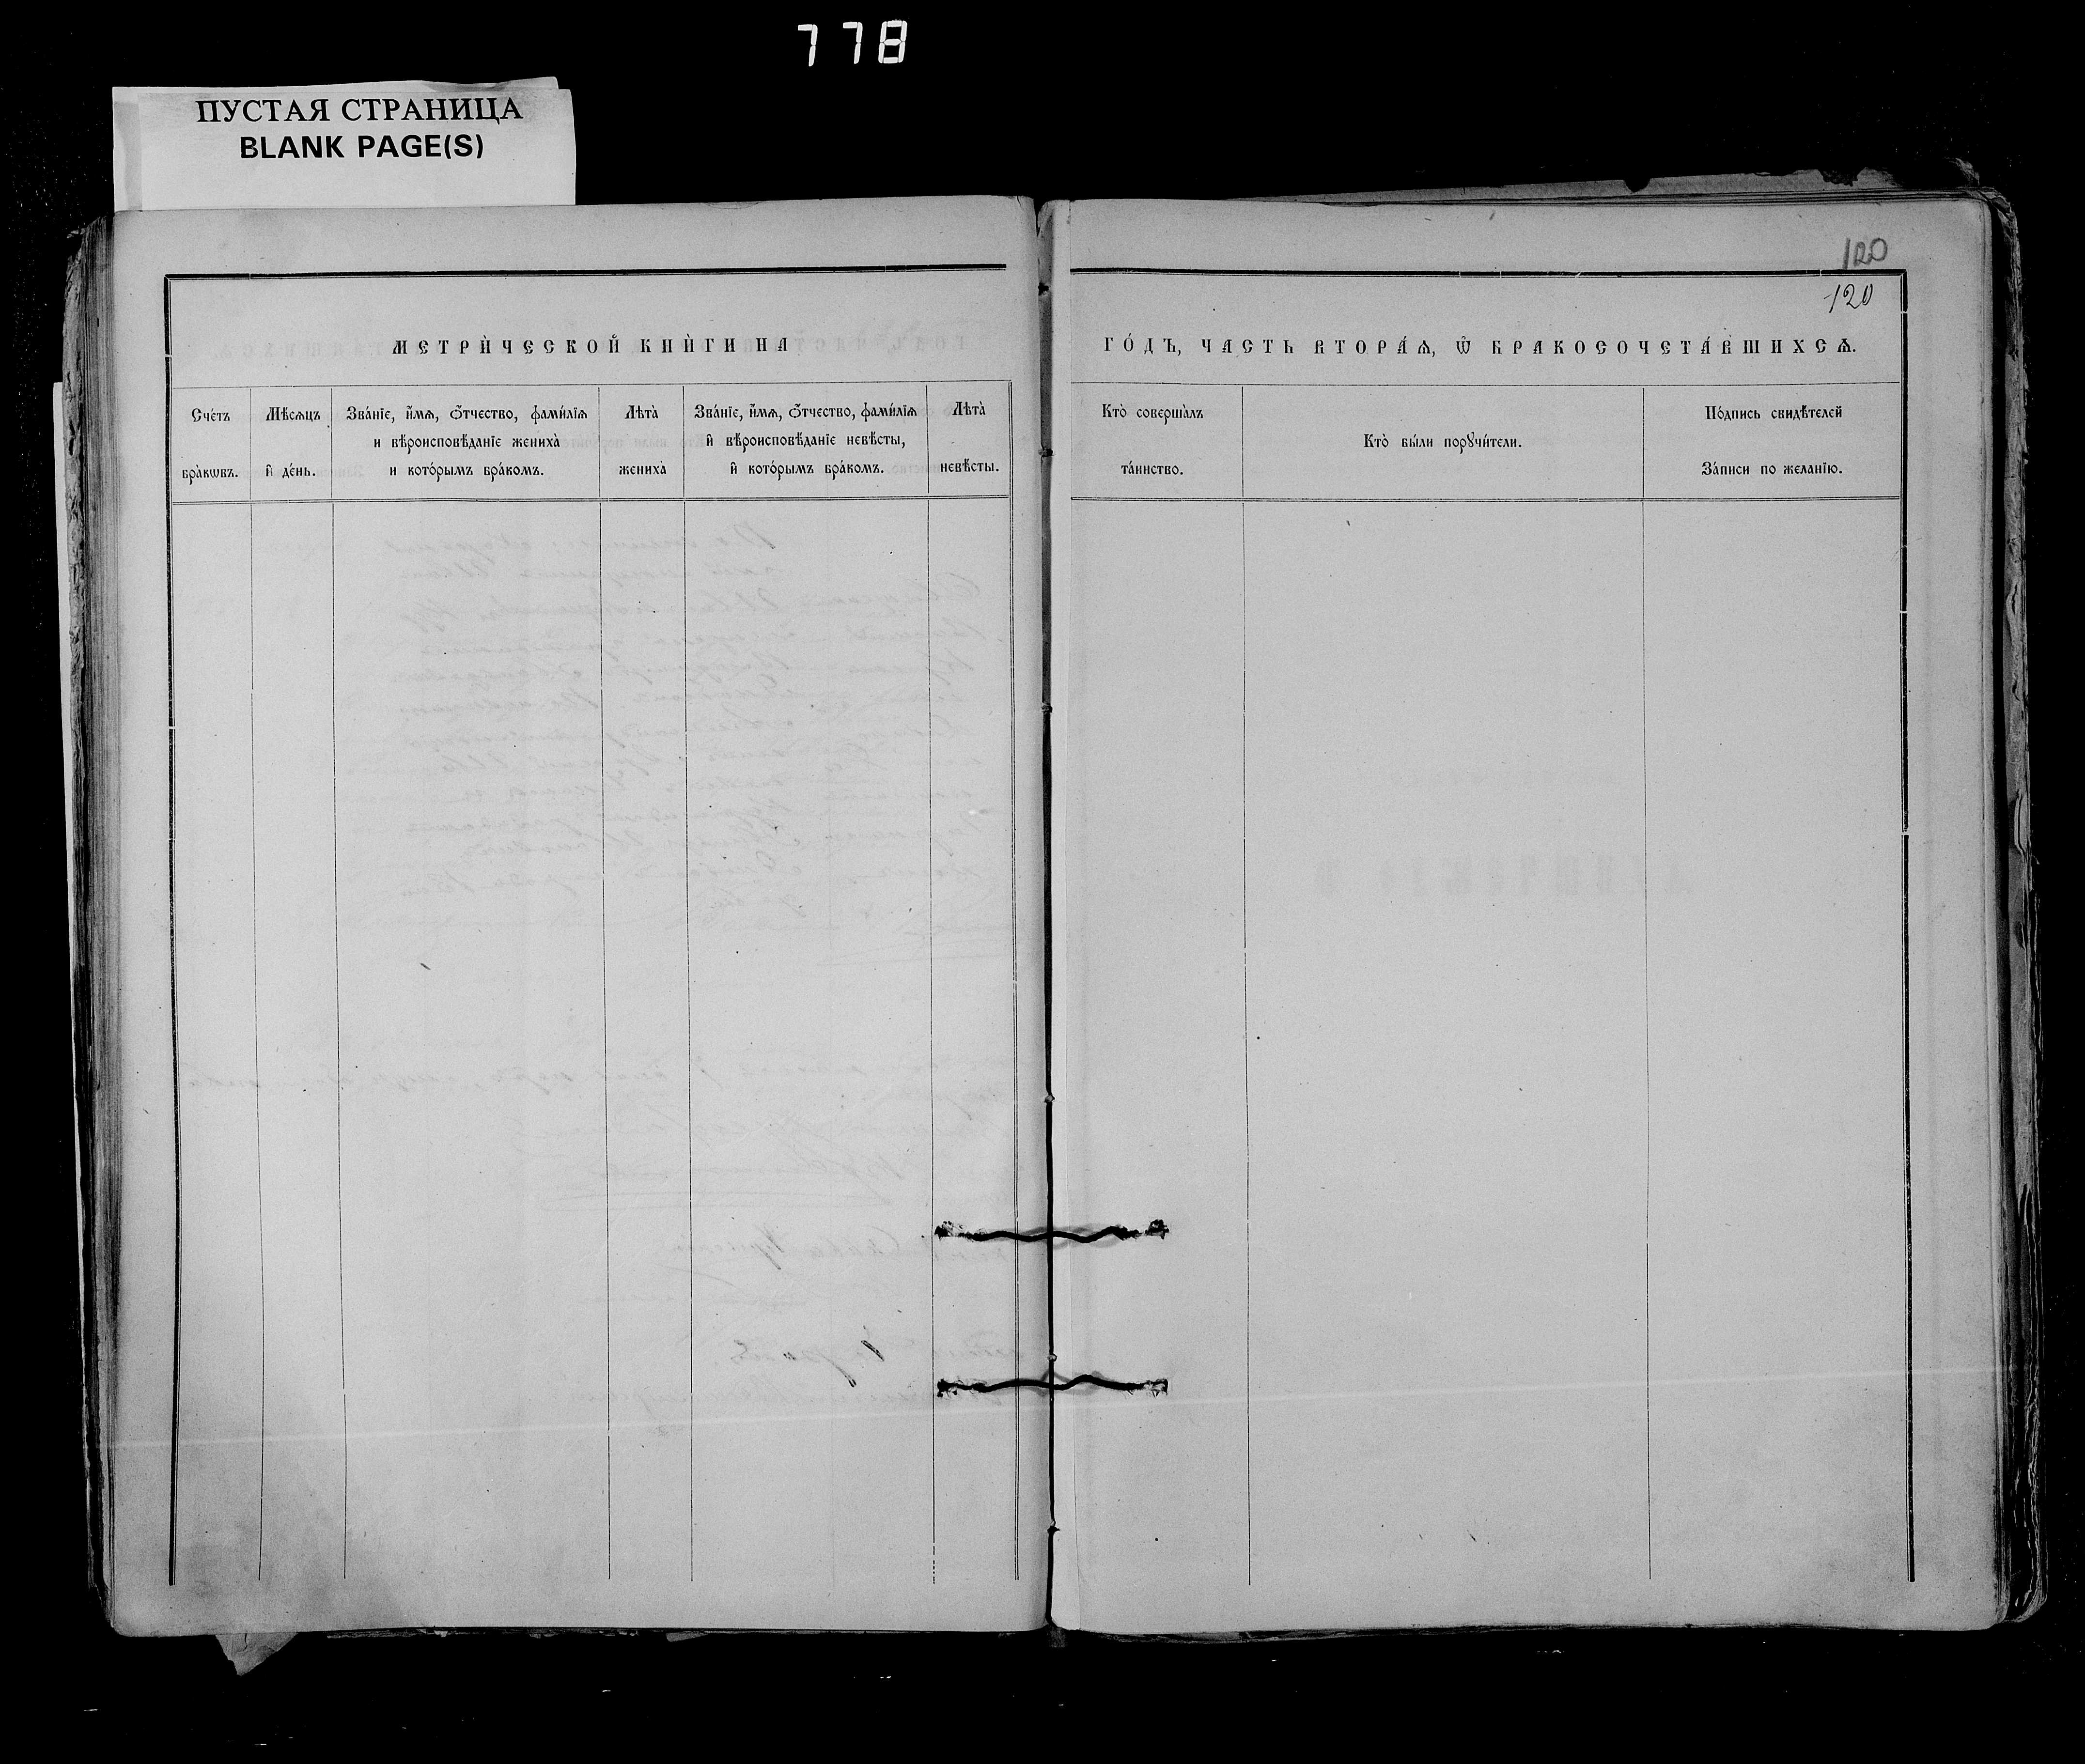 778
ПУСТАЯ СТРАНИЦА
BLANK PAGE(S)
120
120
МЕТРЍЧЕСКОЙ КНЍГИ НА
ГО́ДЪ, ЧАСТЬ ВТОРА́Ѧ, Ѡ҆ БРАКОСОЧЕТА́ВШИХСѦ.
Сче́тъ бра̀кѡвъ.
Мѣ́сѧцъ и҆ де́нь.
Зва́нїе, и҆́мѧ, ѻ҆́тчество, фами́лїѧ
и вѣроисповѣ́данїе жениха̀
и кото́рымъ бра́комъ.
Лѣта̀ жениха̀
Зва́нїе, и҆́мѧ, ѻ҆́тчество, фами́лїѧ
и҆ вѣроисповѣ́данїе невѣ́сты,
и҆ кото́рымъ бра́комъ.
Лѣта̀ невѣ́сты.
Кто̀ соверша̀лъ
та́инство.
Кто̀ бы́ли порꙋчи́тели.
По́дпись свидѣ́телей
За́писи по жела́нїю.